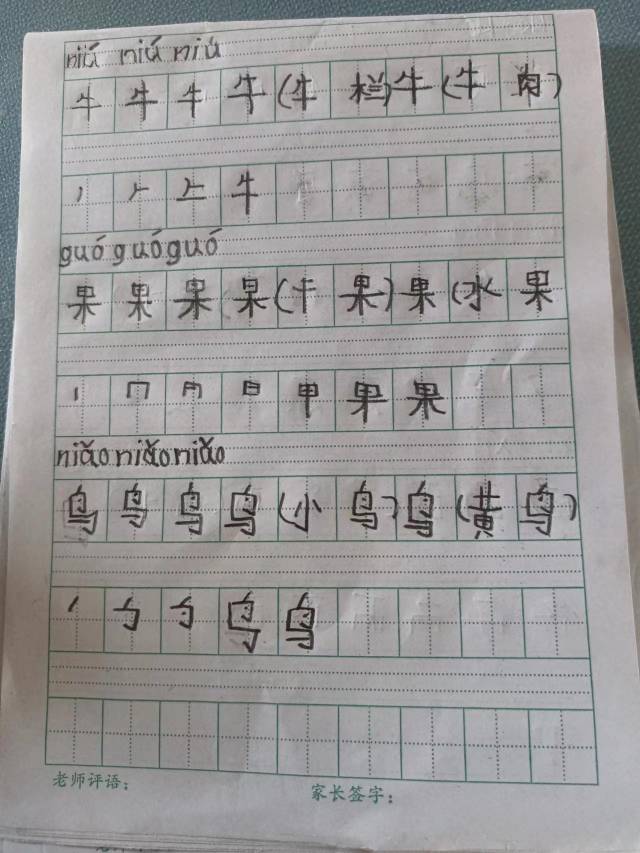 niú niú niú
牛 牛 牛 牛 (牛 栏) 牛 (牛 肉)
丿 𠂉 牛
guó guó guó
果 果 果 果 (牛 果) 果 (水 果
丨 冂 日 甲 果 果
niǎo niǎo niǎo
鸟 鸟 鸟 鸟 (小 鸟) 鸟 (黄 鸟)
丿 鸟 鸟
老师评语: 家长签字: